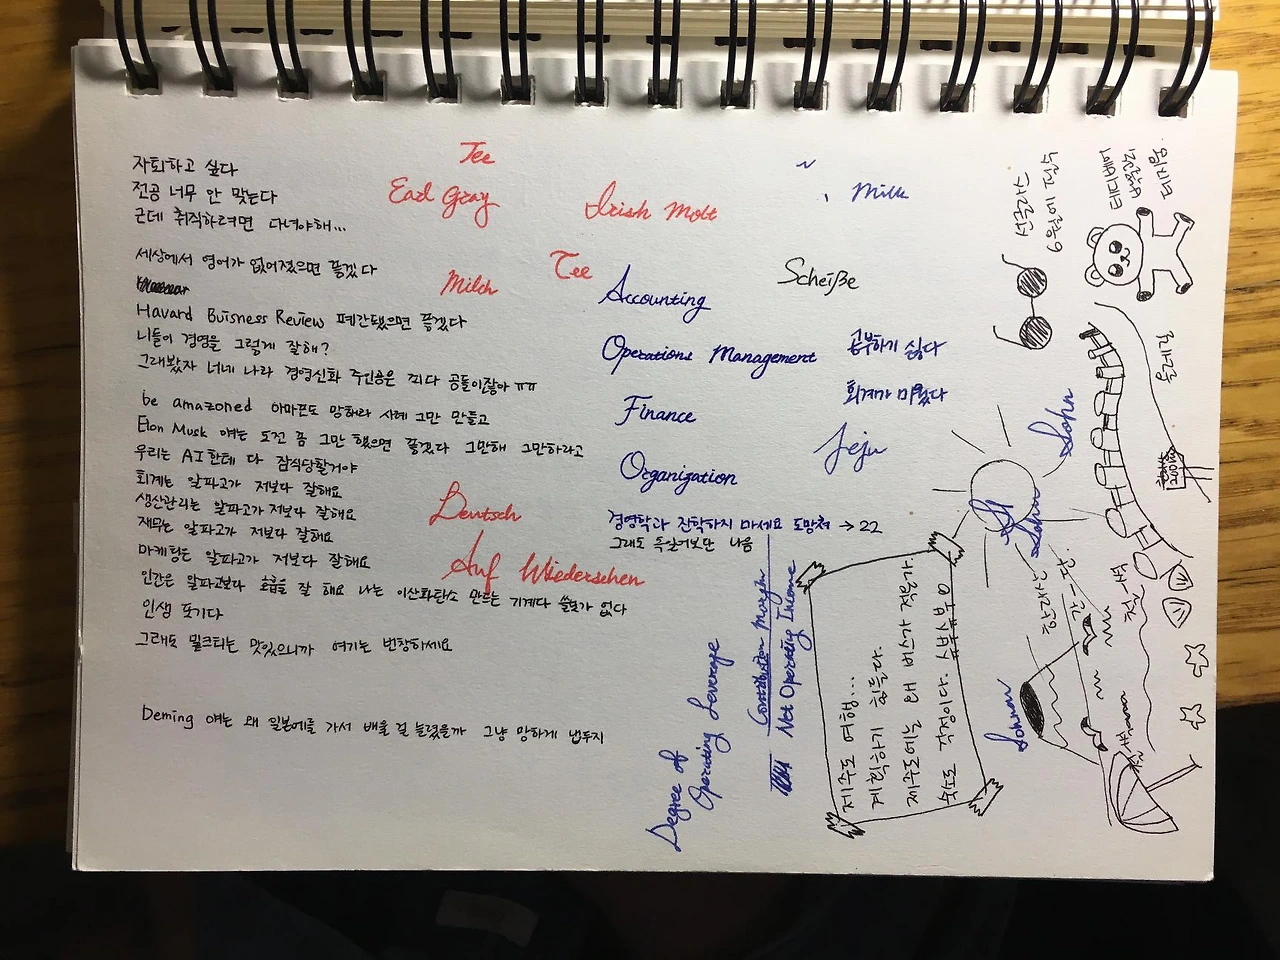 자퇴하고 싶다
전공 너무 안 맞는다
근데 취직하려면 다녀야해...
세상에서 영어가 없어졌으면 좋겠다
Havard Buisness Review 폐간됐으면 좋겠다
니들이 경영을 그렇게 잘해?
그래봤자 너네 나라 경영신화 주인공은 죄다 공돌이잖아 ㅠㅠ
be amazoned 아마존도 망해라 사례 그만 만들고
Elon Musk 얘는 도전 좀 그만 했으면 좋겠다 그만해 그만하라고
우리는 AI한테 다 잠식당할거야
회계는 알파고가 저보다 잘해요
생산관리는 알파고가 저보다 잘해요
재무는 알파고가 저보다 잘해요
마케팅은 알파고가 저보다 잘해요
인간은 알파고보다 호흡을 잘 해요 나는 이산화탄소 만드는 기계다 쓸모가 없다
인생 포기다
그래도 밀크티는 맛있으니까 여기는 번창하세요
Deming 얘는 왜 일본애들 가서 배울 걸 늘렸을까 그냥 망하게 냅두지
Tee
Earl Gray
Irish Malt
Milk
Tee
Milch
Scheiße
Accounting
Operations Management
공부하기 싫다
Finance
회계가 미웠다
Jeju
Organization
Deutsch
경영학과 진학하지 마세요 도망쳐 → 22
그래도 독일어보단 나음
Auf Wiedersehen
Degree of
Operating Leverage
Contribution Margin
Net Operating Income
제주도 여행...
계획하기 힘들다.
제주도에는 왜 버스가 적은가
숙소도 걱정이다.
Sohn
Sohn
선글라스
6월에 필수
테디베어
박물관
올레길
200m
한라산